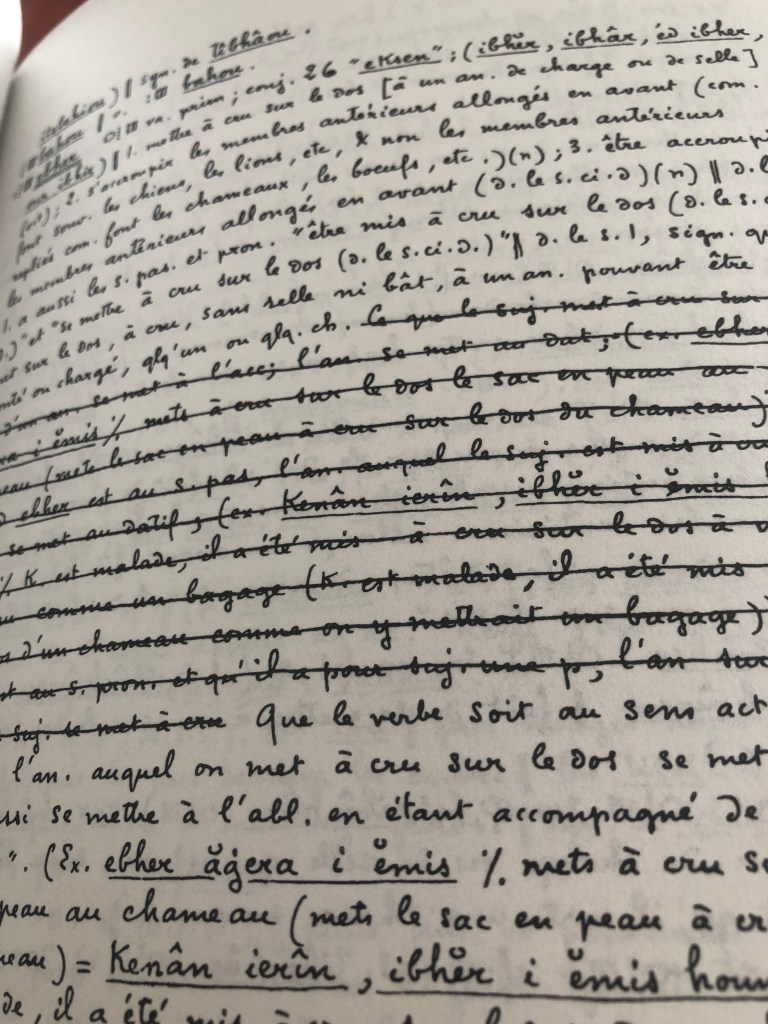 itelehiou) | syn. de tibhâou.
bahou | v. bahou.
ebher va. prim; conj. 26 "eksen"; (ibhĕr, ibhâr, éd ibher,
our ibhir) | 1. mettre à cru sur le dos [à un an. de charge ou de selle]
(act); 2. s'accroupir les membres antérieurs allongés en avant (com.
font souv. les chiens, les lions, etc, & non les membres antérieurs
repliés com. font les chameaux, les boeufs, etc.)(n); 3. être accroupi
les membres antérieurs allongés en avant (d. le s. ci. d)(n) || d. l
1. a aussi les s. pas. et pron. "être mis à cru sur le dos (d. le s. c
d.)" et "se mettre à cru sur le dos (d. le s. ci. d.)" || d. le s. 1, sign. qu
sur le dos, à cru, sans selle ni bât, à un an. pouvant être
monté ou chargé, qlq'un ou qlq. ch. Ce que le suj. met à cru sur
d'un an. se met à l'acc; l'an. se met au dat; (ex. ebher
i ĕmis ٪ mets à cru sur le dos le sac en peau au
eau (mets le sac en peau à cru sur le dos du chameau)
ebher est au s. pas, l'an. auquel le suj. est mis à cru
se met au datif; (ex. Kenân ierîn, ibhĕr i ĕmis
٪ K. est malade, il a été mis à cru sur le dos à
comme un bagage (K. est malade, il a été mis
d'un chameau comme on y mettrait un bagage)
au s. pron. et qu'il a pour suj. une p, l'an sur
suj. se met à cru Que le verbe soit au sens act
l'an. auquel on met à cru sur le dos se met
ssi se mettre à l'abl. en étant accompagné de
". (Ex. ebher ăġera i ĕmis ٪ mets à cru s
peau au chameau (mets le sac en peau à cr
meau) = Kenân ierîn, ibhĕr i ĕmis houn
de, il a été mis à cru sur le dos